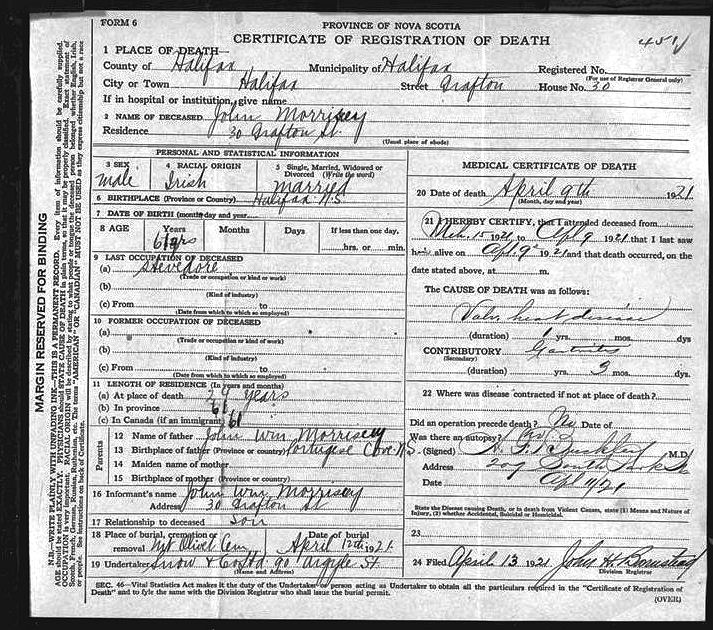 FORM 6
PROVINCE OF NOVA SCOTIA
CERTIFICATE OF REGISTRATION OF DEATH
1 PLACE OF DEATH—
County of Halifax Municipality of Halifax Registered No.
(For use of Registrar General only)
City or Town Halifax Street Grafton House No. 30
If in hospital or institution, give name
2 NAME OF DECEASED John Morrisey
Residence 30 Grafton St.
(Usual place of abode)
PERSONAL AND STATISTICAL INFORMATION
3 SEX male
4 RACIAL ORIGIN Irish
5 Single, Married, Widowed or Divorced (Write the word) Married
6 BIRTHPLACE (Province or Country) Halifax N.S
7 DATE OF BIRTH (month day and year)
8 AGE Years Months Days If less than one day,
61 yrs
hrs. or min.
9 LAST OCCUPATION OF DECEASED
(a) Stevedore
(Trade or occupation or kind of work)
(b)
(Kind of industry)
(c) From to
(Date from which to which so employed)
10 FORMER OCCUPATION OF DECEASED
(a)
(Trade or occupation or kind of work)
(b)
(Kind of industry)
(c) From to
(Date from which to which so employed)
11 LENGTH OF RESIDENCE (In years and months)
(a) At place of death years
(b) In province 61
(c) In Canada (if an immigrant) 61
Parents
12 Name of father John Wm Morrisey
13 Birthplace of father (Province or country) Portugese Cove N.S.
14 Maiden name of mother
15 Birthplace of mother (Province or Country)
16 Informant's name John Wm Morrisey
Address 30 Grafton St
17 Relationship to deceased Son
18 Place of burial, cremation or removal Mt Olivet Cem Date of burial April 12th 1921.
19 Undertaker Snow & Co Ltd 90 Argyle St.
(Name and Address)
MEDICAL CERTIFICATE OF DEATH
20 Date of death April 9th 1921
(Month, day and year)
21 I HEREBY CERTIFY, that I attended deceased from
Mch. 15 1921 to Apl 9 1921 that I last saw
h alive on Apl 9 1921 and that death occurred, on
date stated above, at m.
The CAUSE OF DEATH was as follows:
Valv. heart disease
(duration) 1 yrs. mos. dys
CONTRIBUTORY Gastritis
(Secondary)
(duration) yrs. 3 mos. dys.
22 Where was disease contracted if not at place of death?
Did an operation precede death? No Date of
Was there an autopsy? no
(Signed) M.D.
Address 207 South Park St
Date Apl 11/21
State the Disease causing Death, or in death from Violent Causes, state (1) Means and Nature of Injury, (2) whether Accidental, Suicidal or Homicidal.
23
24 Filed April 13 1921 John H
Division Registrar
SEC. 46—Vital Statistics Act makes it the duty of the Undertaker or person acting as Undertaker to obtain all the particulars required in the "Certificate of Registration of
Death" and to fyle the same with the Division Registrar who shall issue the burial permit.
(OVER)
MARGIN RESERVED FOR BINDING
N.B.—WRITE PLAINLY WITH UNFADING INK—THIS IS A PERMANENT RECORD. Every item of information should be carefully supplied.
AGE should be stated EXACTLY. PHYSICIANS should STATE CAUSE OF DEATH in plain terms, so that it may be properly classified. Exact statement of
OCCUPATION is very important. RACIAL ORIGIN will be described by stating to what people or tongue the deceased person belonged whether English, Irish,
Scotch, French, German, Russian, Ruthenian, etc. The terms "AMERICAN" OR "CANADIAN" MUST NOT BE USED as they express citizenship but not a race
or people. See instructions on back of Certificate.